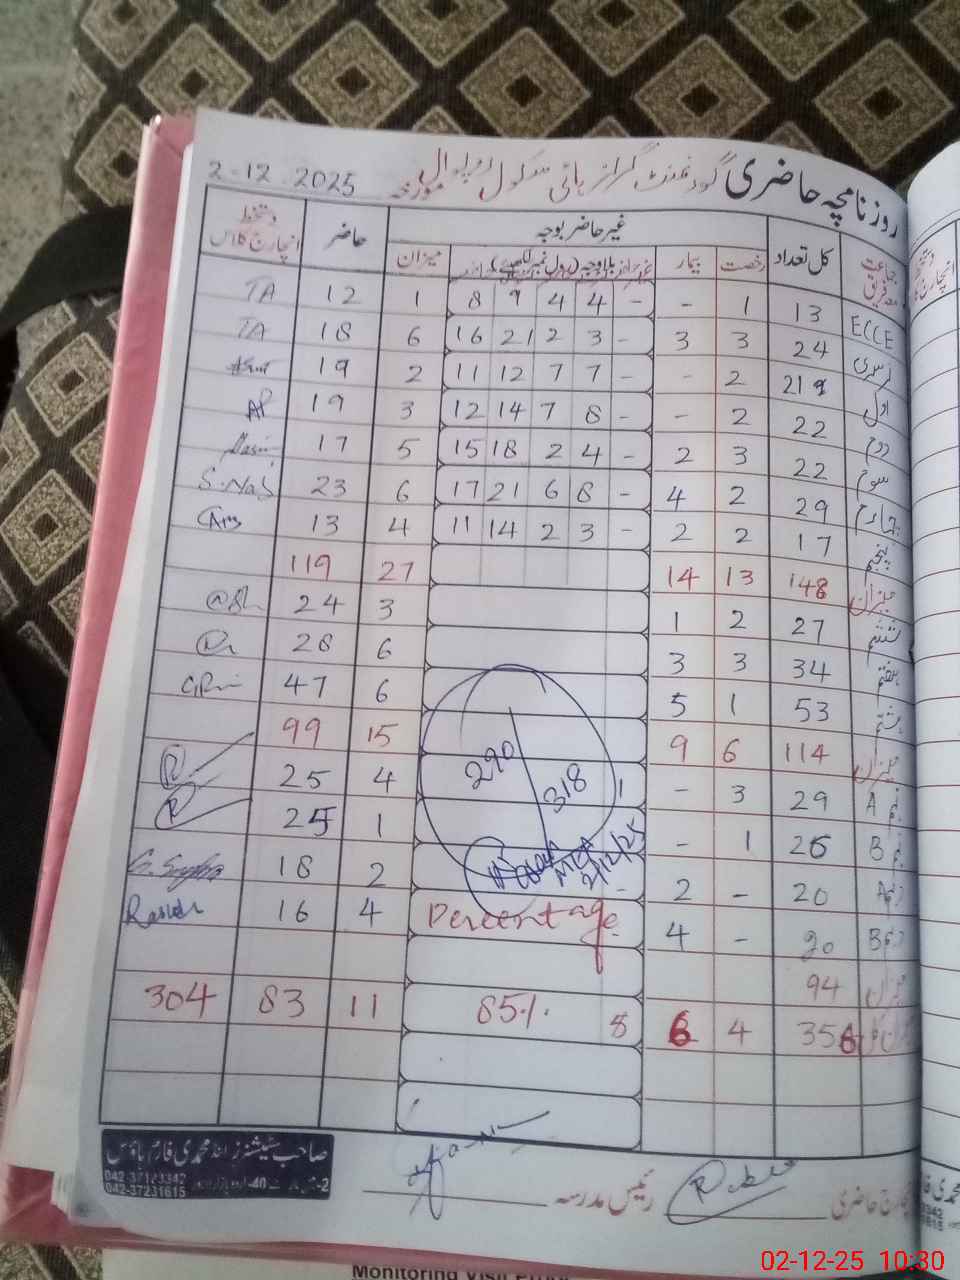 روزنامچہ حاضری گورنمنٹ گرلز ہائی سکول روپوال مورخہ 2-12-2025
جماعت کل تعداد غیر حاضر بوجہ حاضر دستخط انچارج کلاس
رخصت بیمار میزان
ECCE 13 1 - - 4 4 9 8 1 12 TA
نرسری 24 3 3 - 3 2 21 16 6 18 TA
اول 21 2 - - 7 7 12 11 2 19
دوم 22 2 - - 8 7 14 12 3 19 AP
سوم 22 3 2 - 4 2 18 15 5 17
چہارم 29 2 4 - 8 6 21 17 6 23 S.Nas
پنجم 17 2 2 - 3 2 14 11 4 13
میزان 148 13 14 27 119
ششم 27 2 1 3 24
ہفتم 34 3 3 6 28
ہشتم 53 1 5 6 47
میزان 114 6 9 15 99
نہم A 29 3 - 1 4 25
نہم B 26 1 - 1 25
دہم A 20 - 2 - 2 18
دہم B 20 - 4 4 16
290
318
MEA
2/12/25
Percentage
میزان 94
میزان کل 356 4 6 8 85% 11 83 304
انچارج حاضری
رئیس مدرسہ
صاحب سٹیشنرز اینڈ محمدی فارم ہاؤس
042-37123342
042-37231615
Monitoring Visit
02-12-25 10:30